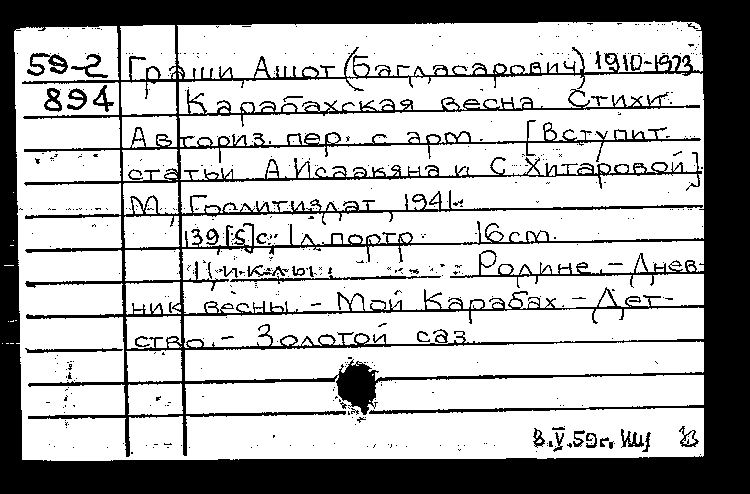 59-2 Граши, Ашот (Багдасарович) 1910-1973
894 Карабахская весна. Стихи.
Авториз. пер. с арм. [Вступит.
статьи А. Исаакяна и С. Хитаровой]
М., Гослитиздат, 1941.
139 [5] с., 1 л. портр. 16 см.
Циклы: Родине. - Днев-
ник весны. - Мой Карабах. - Дет-
ство. - Золотой саз.
8.V.59г.